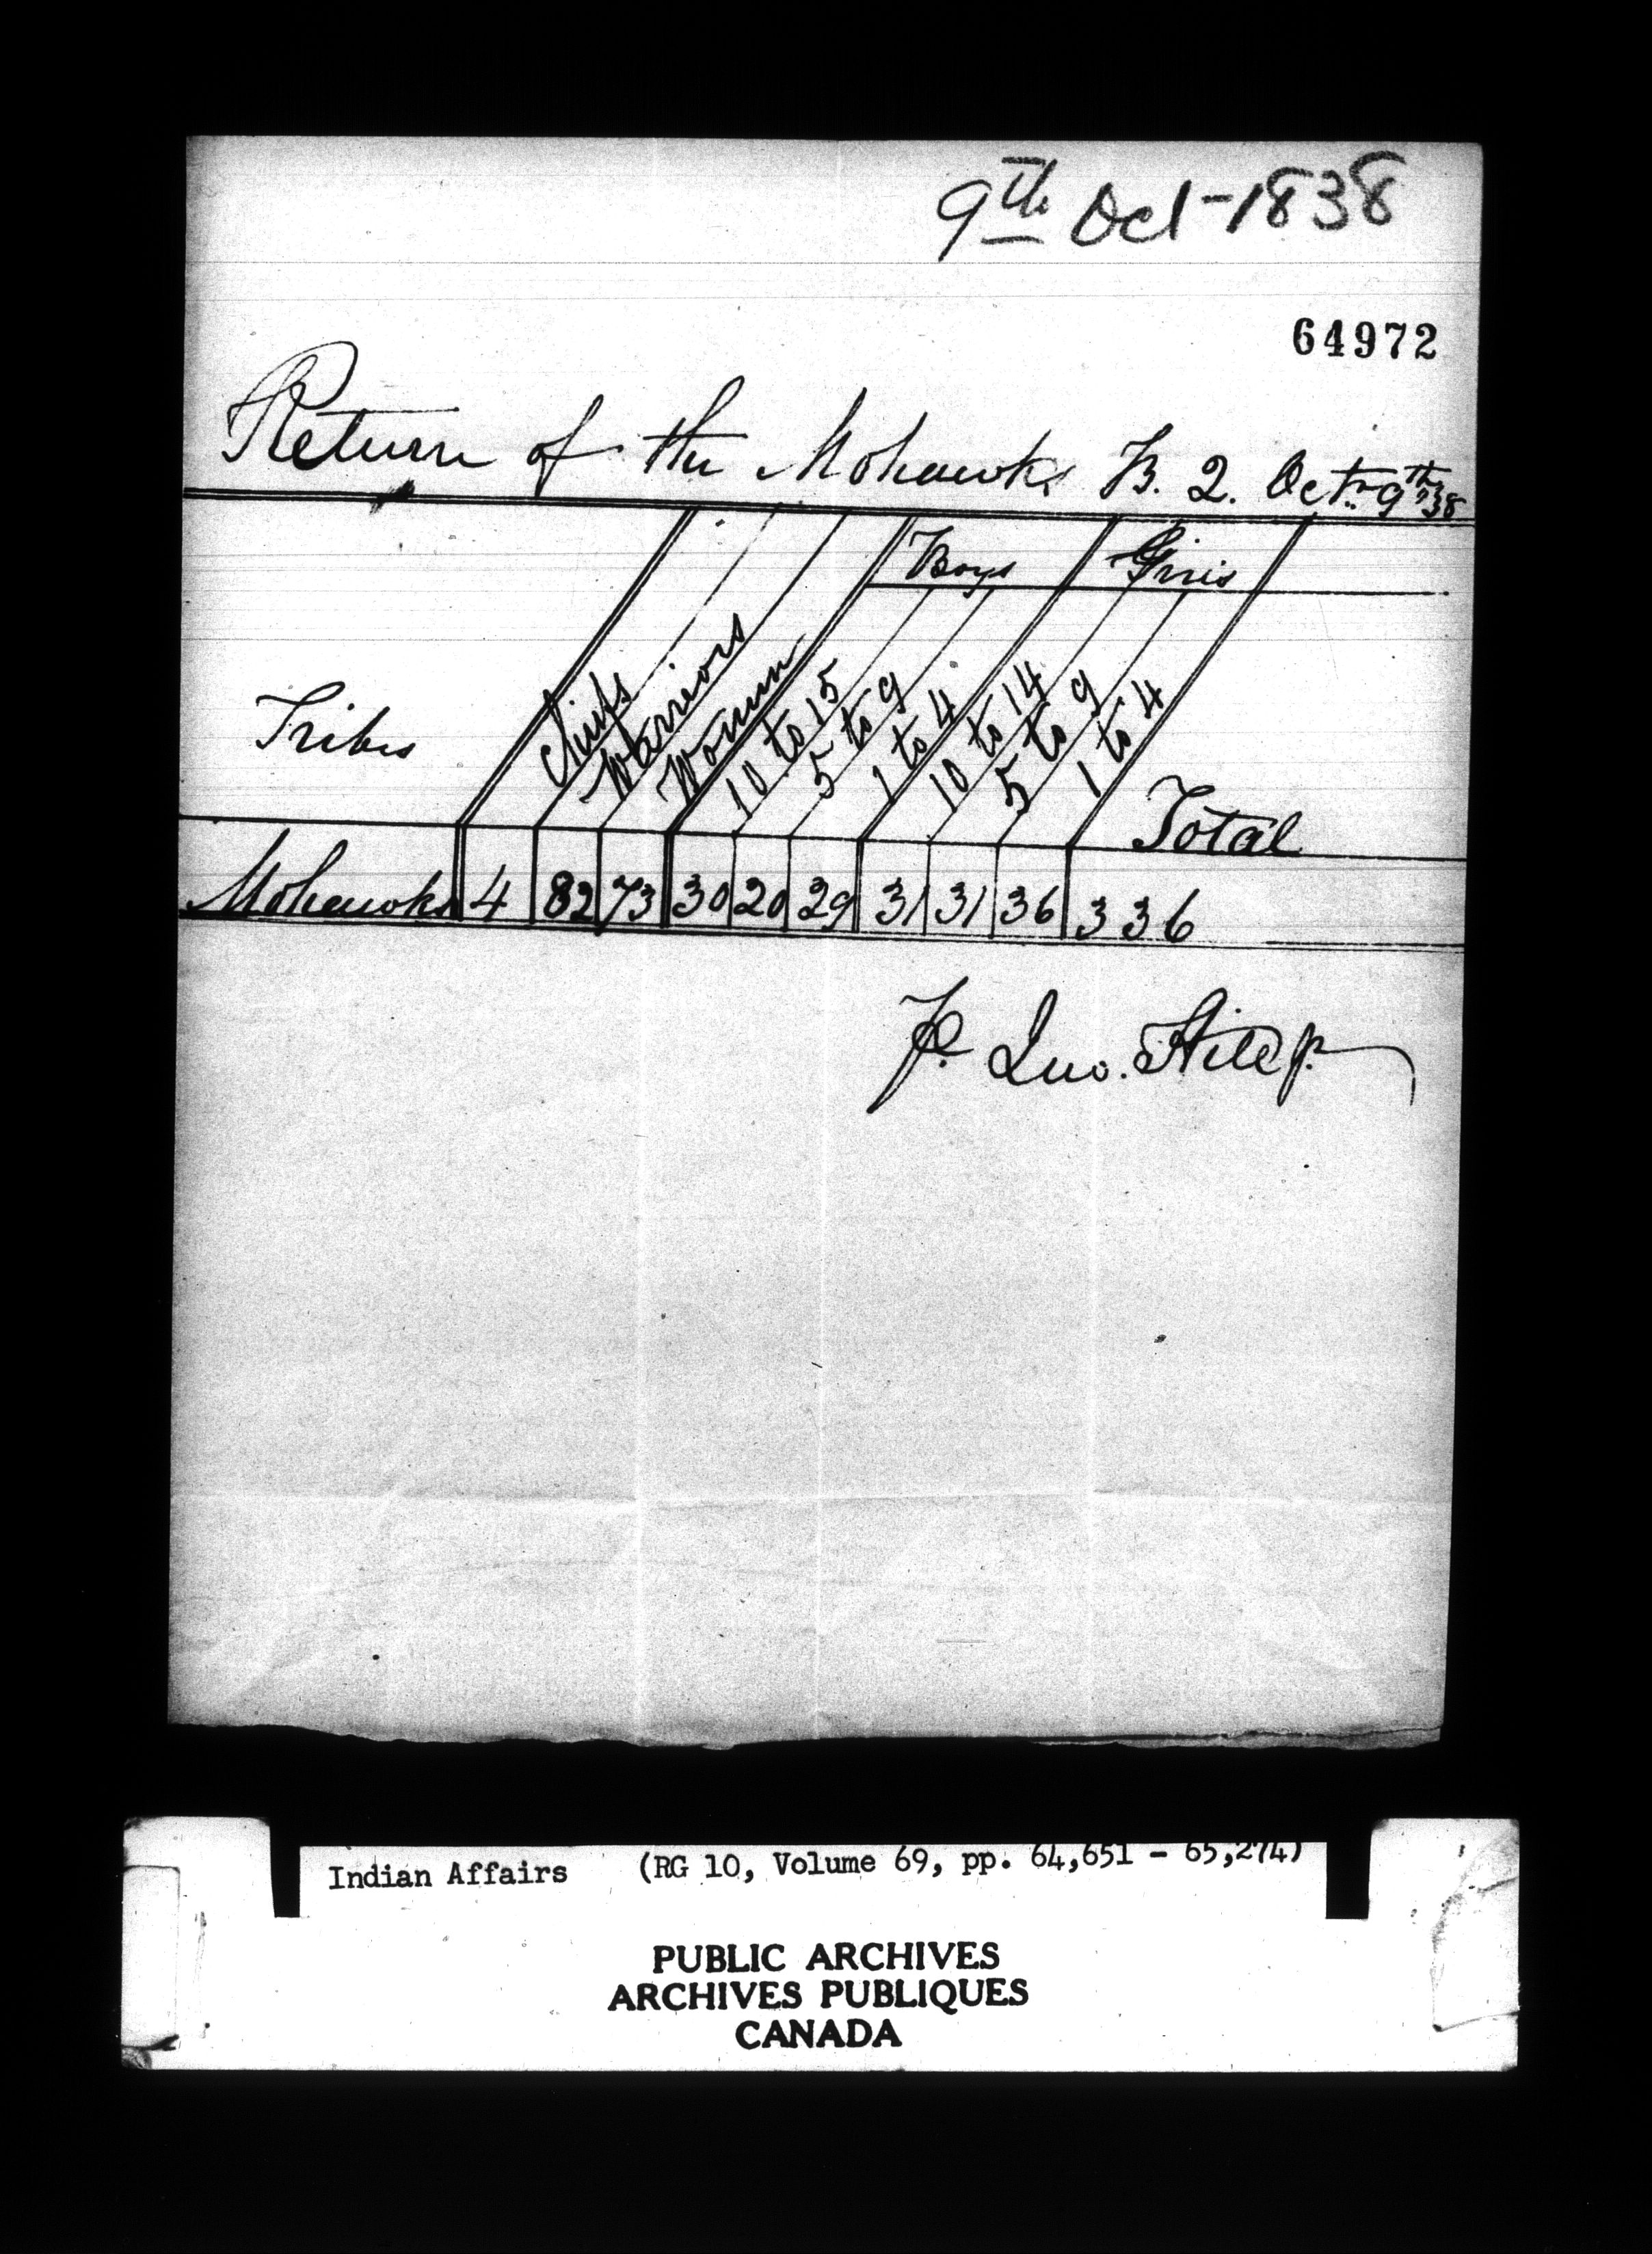 9th Oct - 1838
64972
Return of the Mohawks B. Q. Octr. 9th '38
Boys Girls
Tribes Chiefs Warriors Women 10 to 15 5 to 9 1 to 4 10 to 14 5 to 9 1 to 4 Total
Mohawks 4 82 73 30 20 29 31 31 36 336
Jno. Hill
Indian Affairs (RG 10, Volume 69, pp. 64,651 - 65,274)
PUBLIC ARCHIVES
ARCHIVES PUBLIQUES
CANADA